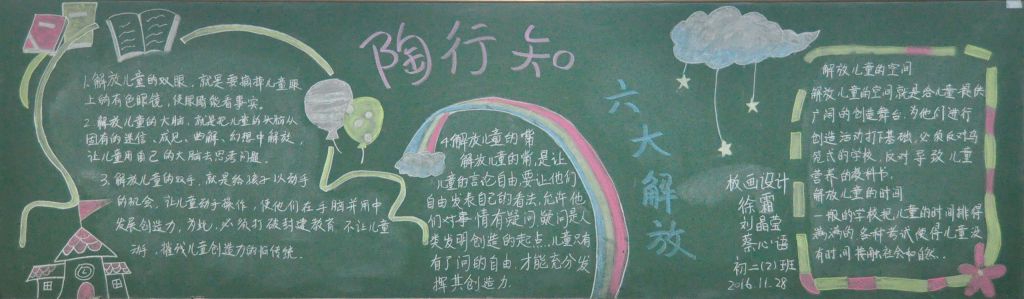 陶行知
六大解放
1.解放儿童的双眼，就是要摘掉儿童眼
上的有色眼镜，使眼睛能看事实。
2.解放儿童的大脑，就是把儿童的头脑从
固有的迷信、成见、曲解、幻想中解放，
让儿童用自己的大脑去思考问题.
3.解放儿童的双手，就是给孩子以动手
的机会，让儿童动手操作，使他们在手脑并用中
发展创造力，为此，必须打破封建教育不让儿童
动手，摧残儿童创造力的旧传统.
4.解放儿童的嘴
解放儿童的嘴,是让
儿童的言论自由要让他们
自由发表自己的看法,允许他
们对事情有疑问疑问是人
类发明创造的起点,儿童只有
有了问的自由,才能充分发
挥其创造力.
板画设计
徐霜
刘晶莹
蔡心语
初二(2)班
2016.11.28
解放儿童的空间
解放儿童的空间就是给儿童提供
广阔的创造舞台,为他们进行
创造活动打基础,必须反对鸟
笼式的学校,反对导致儿童
营养的教科书.
解放儿童的时间
一般的学校把儿童的时间排得
满满的各种考试使得儿童没
有时间接触社会和自然..